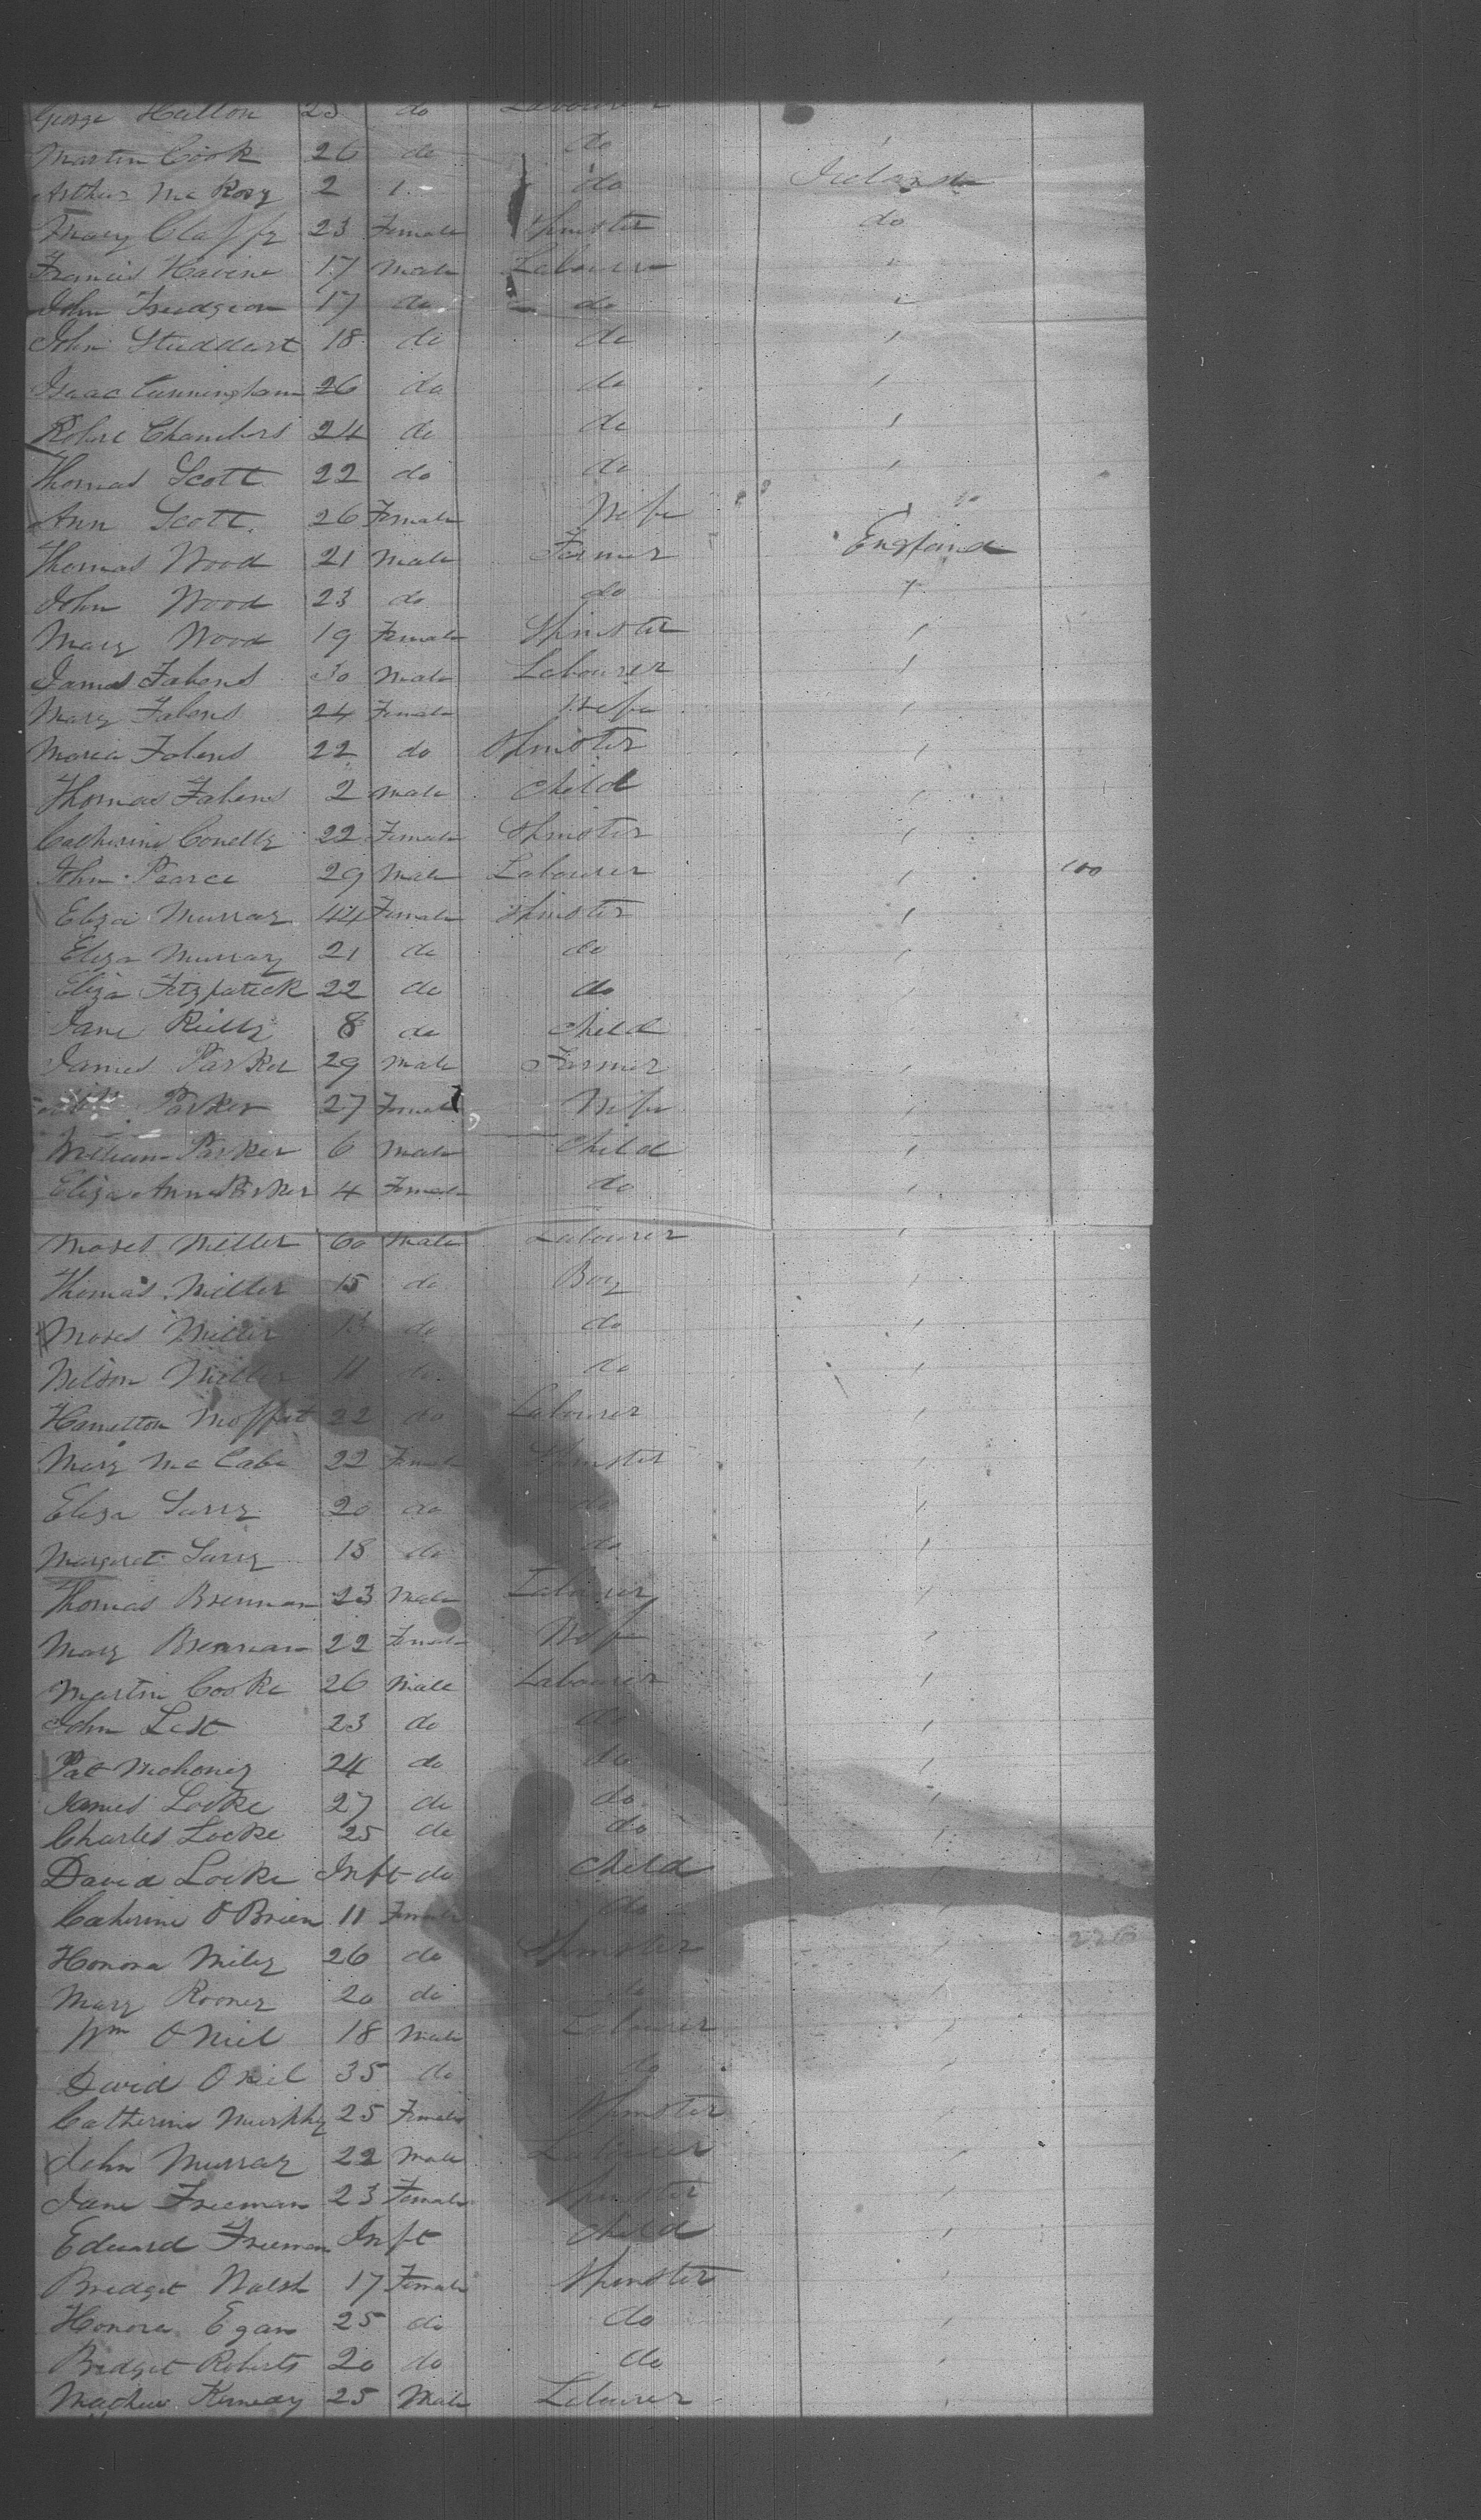 George Hutton 23 do Labourer
Martin Cook 26 do do "
Arthur McRory 2 1. do Ireland
Mary Claffy 23 Female Spinster do
Francis Havine 17 Male Labourer "
John Freedgeon 17 do do "
John Studdert 18 do do "
Isaac Cunningham 26 do do "
Robert Chambers 24 do do "
Thomas Scott 22 do do "
Ann Scott 26 Female Wife
Thomas Wood 21 Male Farmer England
John Wood 23 do do "
Mary Wood 19 Female Spinster "
James Fahens 30 Male Labourer "
Mary Fahens 24 Female Wife "
Maria Fahens 22 do Spinster "
Thomas Fahens 2 Male Child "
Catherine Conelly 22 Female Spinster "
John Pearce 29 Male Labourer " 100
Eliza Murray 44 Female Spinster "
Eliza Murray 21 do do "
Eliza Fitzpatrick 22 do do "
Jane Reilly 8 do Child "
James Parker 29 Male Farmer "
Parker 27 Female Wife "
William Parker 6 Male Child "
Eliza Ann Parker 4 Female do "
Moses Miller 60 Male Labourer "
Thomas Miller 15 do Boy "
Moses Miller 13 do do "
Nelson Miller 11 do do "
Hamelton Moffat 22 do Labourer "
Mary McCabe 22 Female Spinster "
Eliza Surry 20 do do "
Margaret Surry 18 do do "
Thomas Brennan 23 Male Labourer "
Mary Brennan 22 Female Wife "
Martin Cooke 26 Male Labourer "
John List 23 do do "
Pat Mahoney 24 do do "
James Locke 27 do do "
Charles Locke 25 do do "
David Locke Inft do Child "
Catherine O Brien 11 Female do "
Honora Miley 26 do Spinster " 226
Mary Rooney 20 do do "
Wm O Niel 18 Male Labourer "
David O niel 35 do do "
Catherine Murphy 25 Female Spinster "
John Murray 22 Male Labourer "
Jane Freeman 23 Female Spinster "
Edward Freeman Inft Child "
Bridget Walsh 17 Female Spinster "
Honora Egan 25 do do "
Bridget Roberts 20 do do "
Mathew Kennedy 25 Male Labourer "